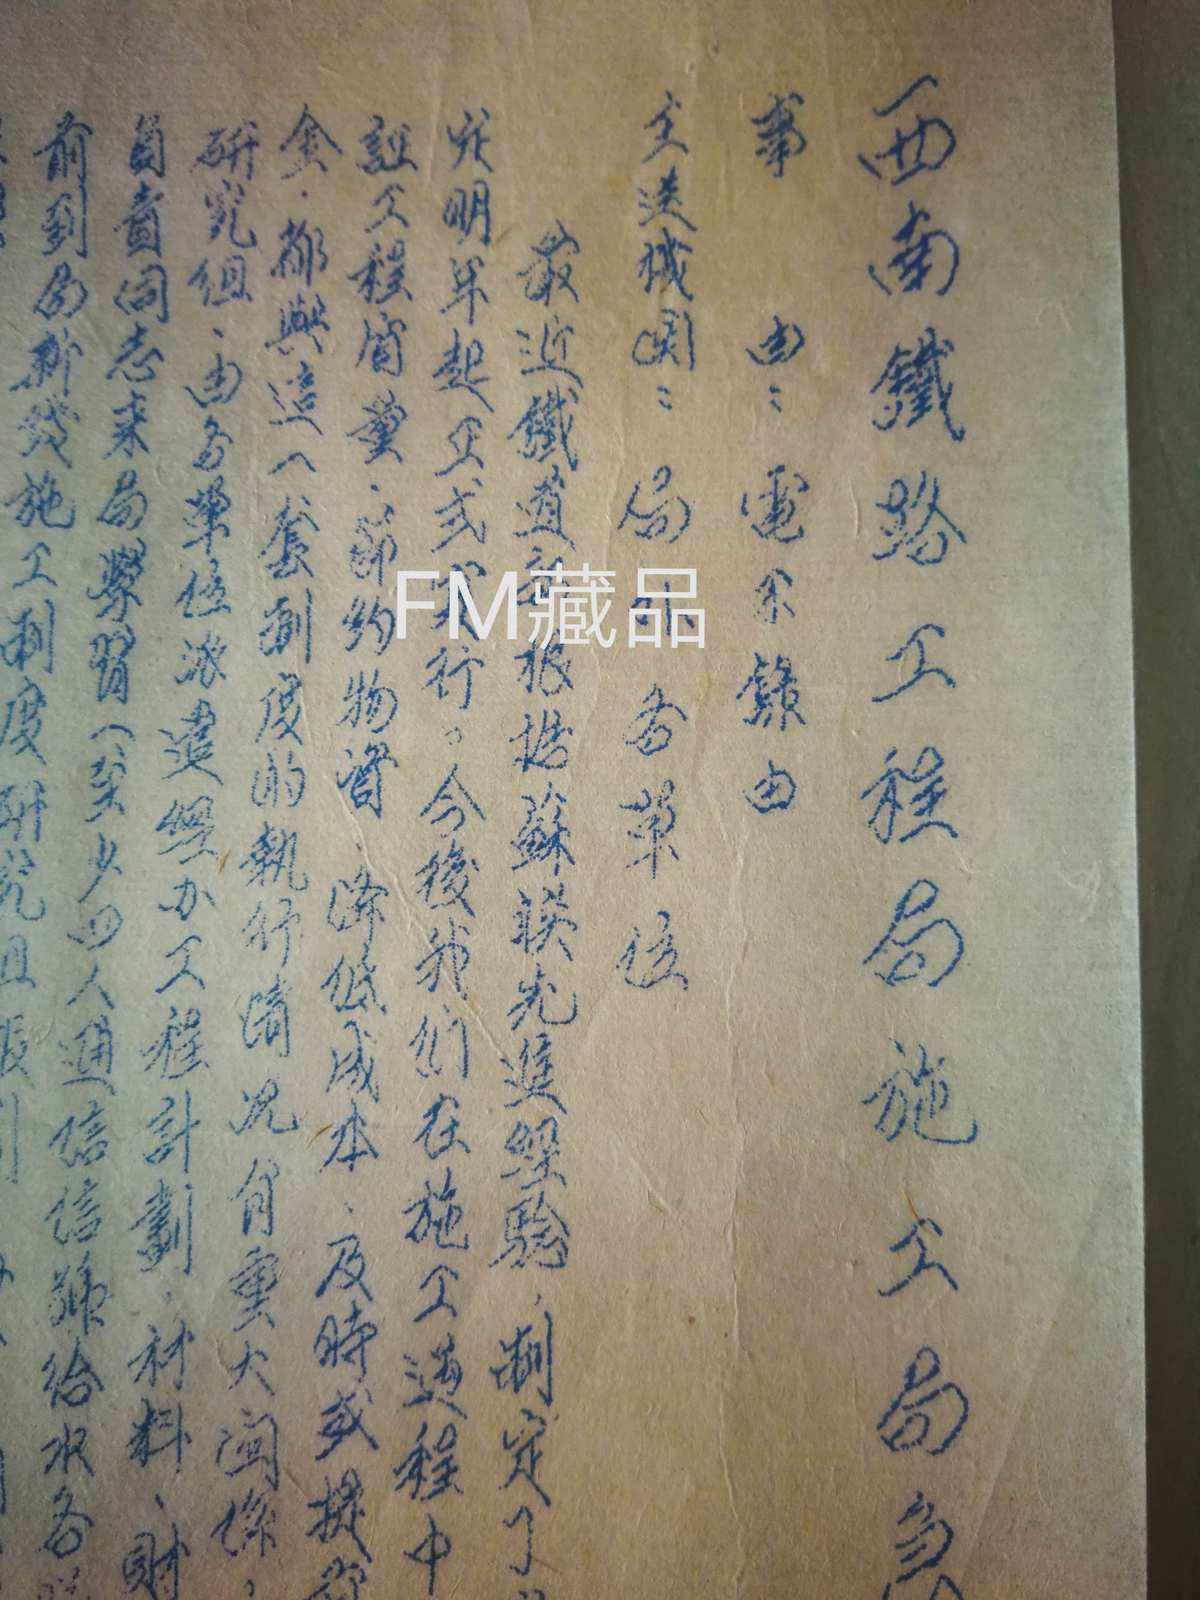 西南鐵路工程局施工局
事 由：電不錄由
主送機関：局外各單位
最近鐵道部根據蘇联先進經驗，制定了
明年起正式实行。今後我们在施工過程中
証工程質量、節約物資、降低成本、及時或提
金，都與這一套制度的執行情况有重大関係，
研究組，由各單位派遣經办工程計劃、材料、財
負責同志来局學習（至少四人通信信號給水各
前到局新綫施工制度研究組報到
FM藏品